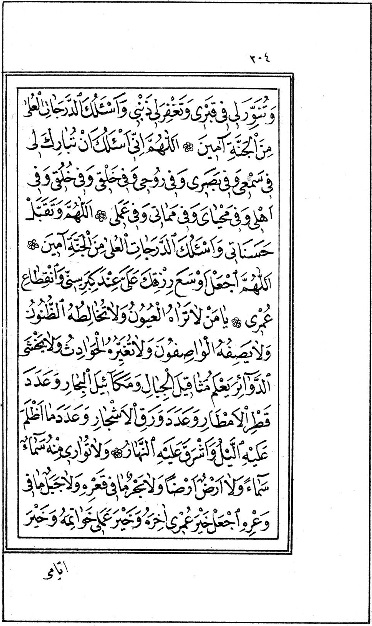 ٢٠٤
وَتُنَوِّرَ لِي فِي قَبْرِي وَتَغْفِرَ لِي ذَنْبِي وَأَسْئَلُكَ الدَّرَجَاتِ الْعُلٰى
مِنَ الْجَنَّةِ آمِينَ ۞ اَللّٰهُمَّ اِنِّي اَسْئَلُكَ اَنْ تُبَارِكَ لِي
فِي سَمْعِي وَفِي بَصَرِي وَفِي رُوحِي وَفِي خَلْقِي وَفِي خُلُقِي وَفِي
اَهْلِي وَفِي مَحْيَايَ وَفِي مَمَاتِي وَفِي عَمَلِي ۞ اَللّٰهُمَّ وَتَقَبَّلْ
حَسَنَاتِي وَاَسْئَلُكَ الدَّرَجَاتِ الْعُلٰى مِنَ الْجَنَّةِ آمِينَ ۞
اَللّٰهُمَّ اجْعَلْ اَوْسَعَ رِزْقِكَ عَلَيَّ عِنْدَ كِبَرِ سِنِّي وَانْقِطَاعِ
عُمْرِي ۞ يَا مَنْ لَا تَرَاهُ الْعُيُونُ وَلَا تُخَالِطُهُ الظُّنُونُ
وَلَا يَصِفُهُ الْوَاصِفُونَ وَلَا تُغَيِّرُهُ الْحَوَادِثُ وَلَا يَخْشَى
الدَّوَائِرَ يَعْلَمُ مَثَاقِيلَ الْجِبَالِ وَمَكَائِيلَ الْبِحَارِ وَعَدَدَ
قَطْرِ الْاَمْطَارِ وَعَدَدَ وَرَقِ الْاَشْجَارِ وَعَدَدَ مَا اَظْلَمَ
عَلَيْهِ الَّيْلُ وَاَشْرَقَ عَلَيْهِ النَّهَارُ ۞ وَلَا تُوَارِي مِنْهُ سَمَاءٌ
سَمَاءً وَلَا اَرْضٌ اَرْضًا وَلَا بَحْرٌ مَا فِي قَعْرِهِ وَلَا جَبَلٌ مَا فِي
وَعْرِهِ اِجْعَلْ خَيْرَ عُمْرِي اٰخِرَهُ وَخَيْرَ عَمَلِي خَوَاتِمَهُ وَخَيْرَ
اَيَّامِي